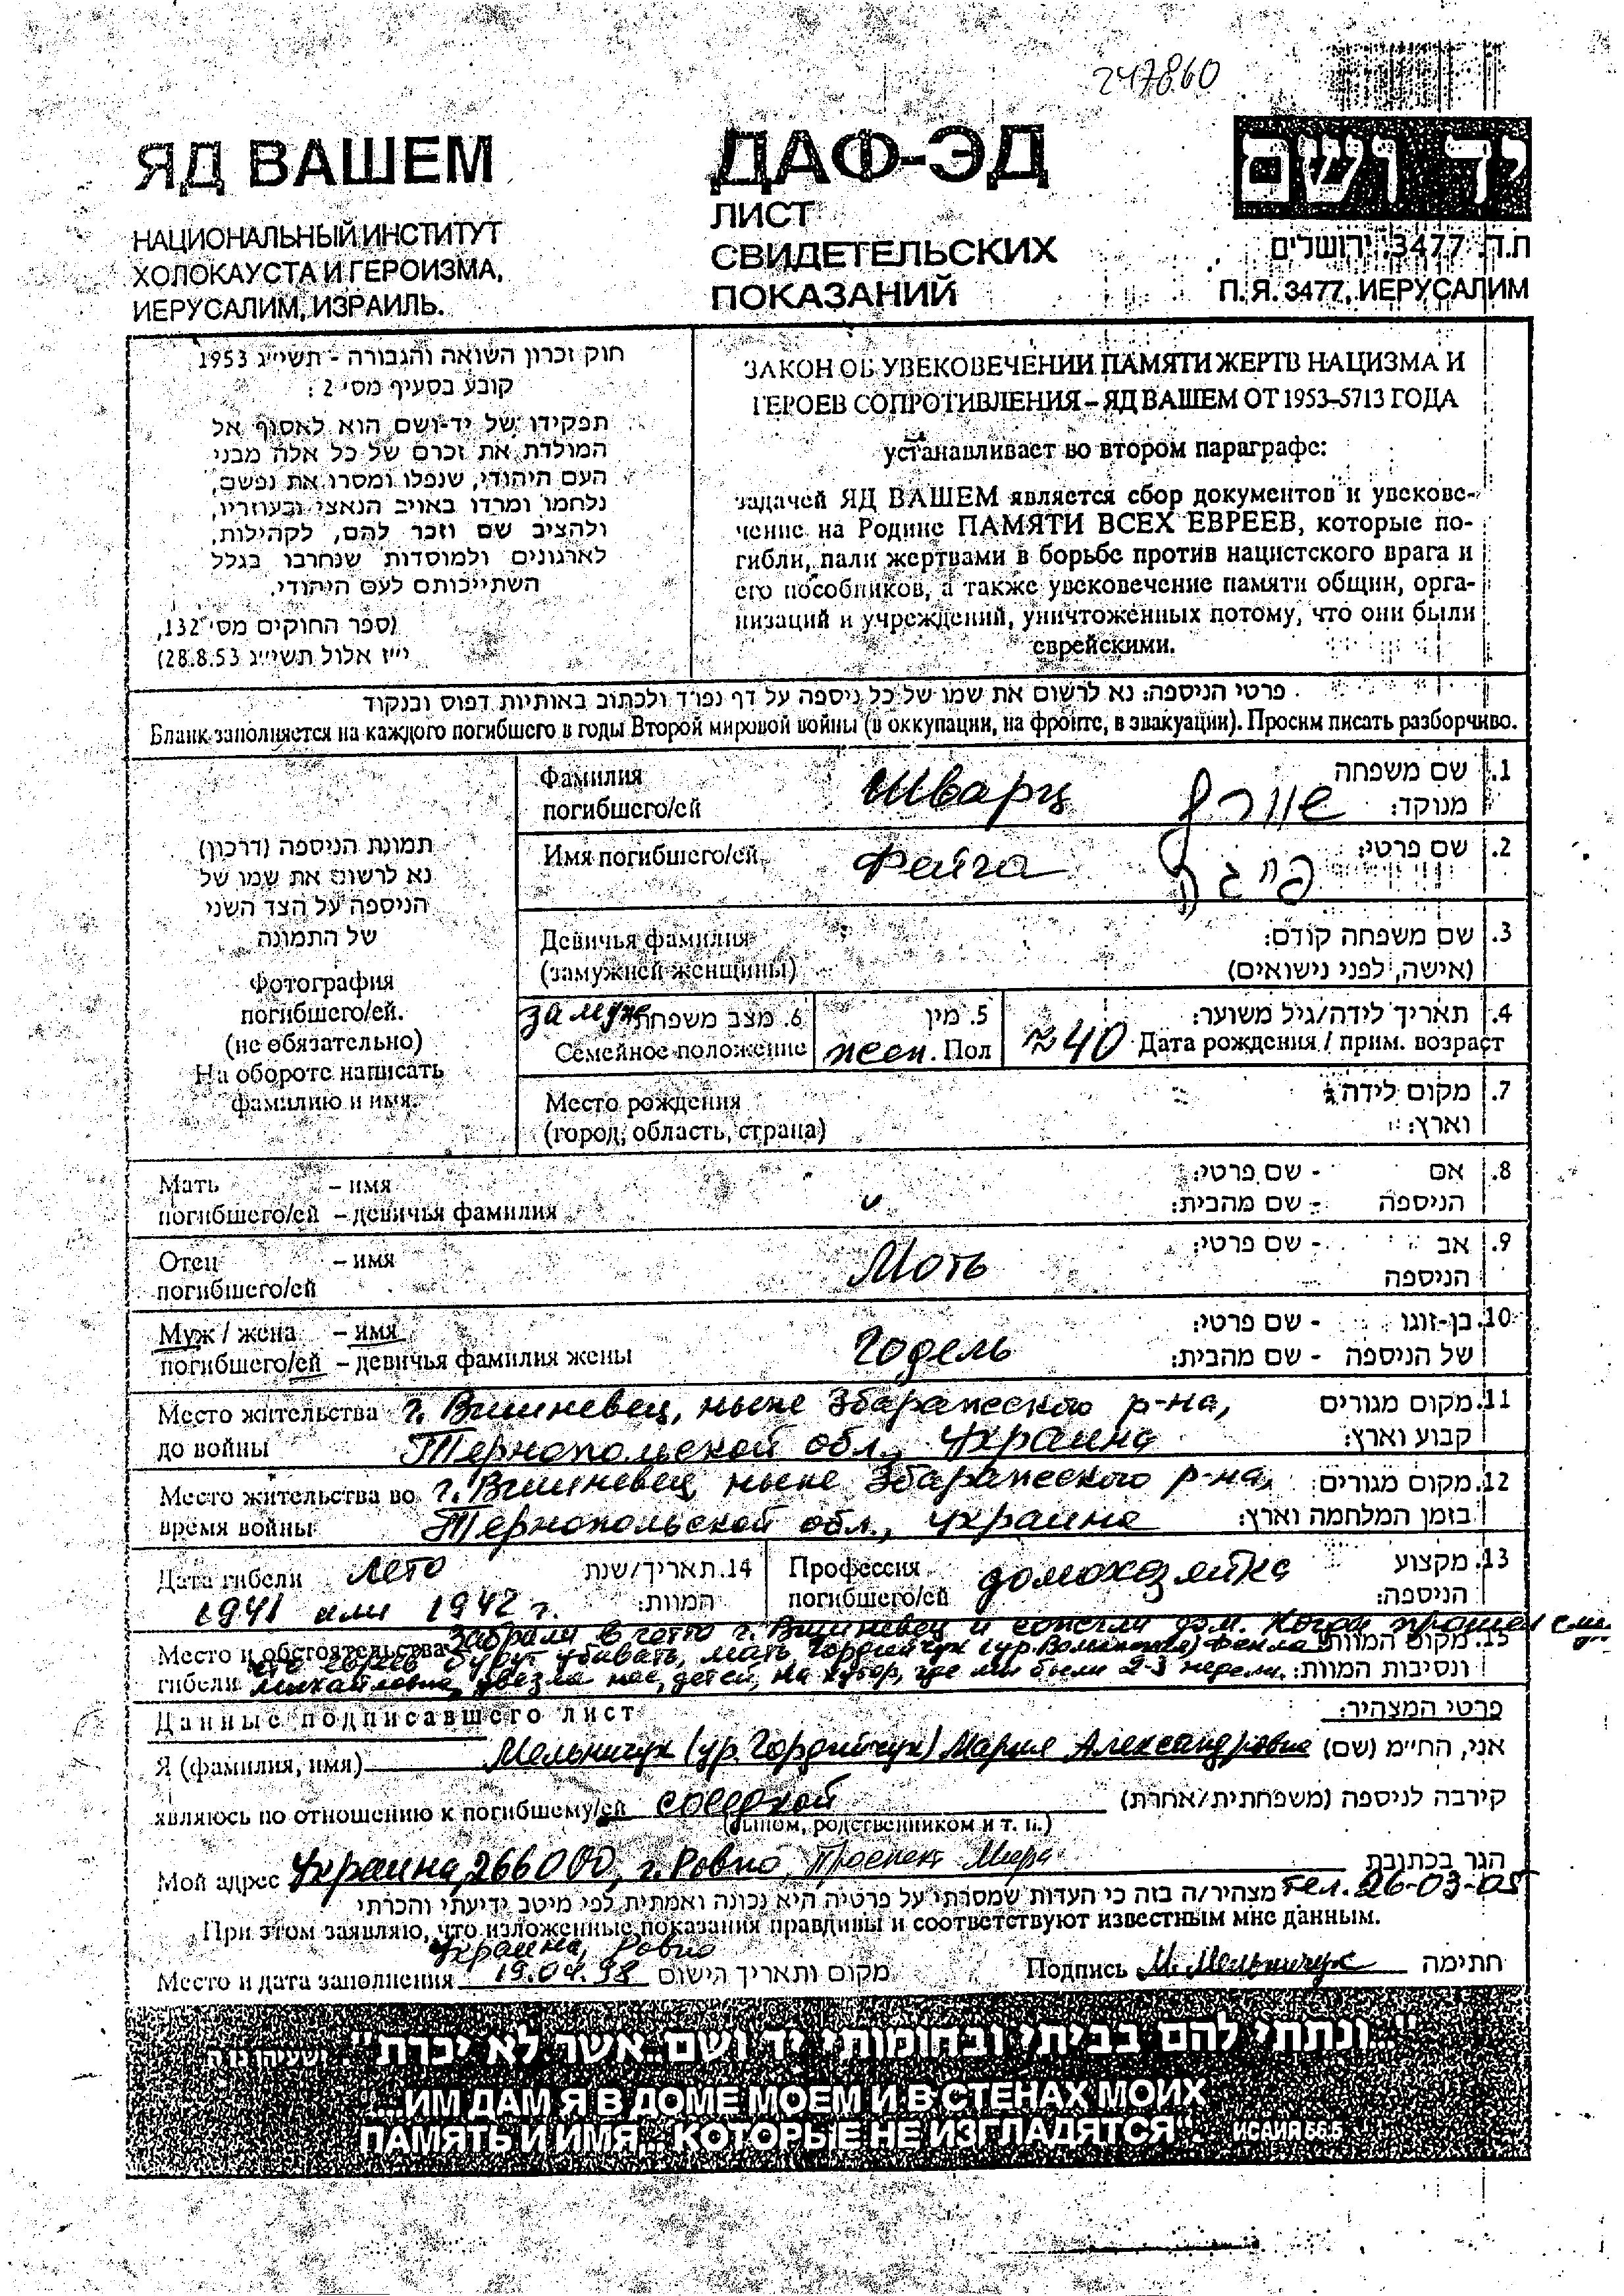 247860
ЯД ВАШЕМ
НАЦИОНАЛЬНЫЙ ИНСТИТУТ
ХОЛОКАУСТА И ГЕРОИЗМА,
ИЕРУСАЛИМ, ИЗРАИЛЬ.
ДАФ-ЭД
ЛИСТ
СВИДЕТЕЛЬСКИХ
ПОКАЗАНИЙ
יד ושם
ת.ד. 3477, ירושלים
П. Я. 3477, ИЕРУСАЛИМ
חוק זכרון השואה והגבורה - תשי״ג 1953
קובע בסעיף מס׳ 2 :
תפקידו של יד-ושם הוא לאסוף אל
המולדת את זכרם של כל אלה מבני
העם היהודי, שנפלו ומסרו את נפשם,
נלחמו ומרדו באויב הנאצי ובעוזריו,
ולהציב שם וזכר להם, לקהילות,
לארגונים ולמוסדות שנחרבו בגלל
השתייכותם לעם היהודי.
(ספר החוקים מס׳ 132,
י״ז אלול תשי״ג 28.8.53)
ЗАКОН ОБ УВЕКОВЕЧЕНИИ ПАМЯТИ ЖЕРТВ НАЦИЗМА И
ГЕРОЕВ СОПРОТИВЛЕНИЯ – ЯД ВАШЕМ ОТ 1953–5713 ГОДА
устанавливает во втором параграфе:
задачей ЯД ВАШЕМ является сбор документов и увекове-
чение на Родине ПАМЯТИ ВСЕХ ЕВРЕЕВ, которые по-
гибли, пали жертвами в борьбе против нацистского врага и
его пособников, а также увековечение памяти общин, орга-
низаций и учреждений, уничтоженных потому, что они были
еврейскими.
פרטי הניספה: נא לרשום את שמו של כל ניספה על דף נפרד ולכתוב באותיות דפוס ובנקוד
Бланк заполняется на каждого погибшего в годы Второй мировой войны (в оккупации, на фронте, в эвакуации). Просим писать разборчиво.
תמונת הניספה (דרכון)
נא לרשום את שמו של
הניספה על הצד השני
של התמונה
Фотография
погибшего/ей.
(не обязательно)
На обороте написать
фамилию и имя.
Фамилия Шварц שוורץ 1. שם משפחה
погибшего/ей מנוקד:
Имя погибшего/ей Фейга פייגה 2. שם פרטי:
Девичья фамилия 3. שם משפחה קודם:
(замужней женщины) (אישה, לפני נישואים)
замуж 6. מצב משפחתי 5. מין 4. תאריך לידה/גיל משוער:
Семейное положение жен. Пол ≈ 40 Дата рождения / прим. возраст
Место рождения 7. מקום לידה
(город, область, страна) וארץ:
Мать – имя 8. אם - שם פרטי:
погибшего/ей – девичья фамилия הניספה - שם מהבית:
Отец – имя Моть 9. אב - שם פרטי:
погибшего/ей הניספה
Муж / жена – имя Годель 10. בן-זוגו - שם פרטי:
погибшего/ей – девичья фамилия жены של הניספה - שם מהבית:
Место жительства г. Вишневец, ныне Збаражского р-на, 11. מקום מגורים
до войны Тернопольской обл., Украина קבוע וארץ:
Место жительства во г. Вишневец, ныне Збаражского р-на, 12. מקום מגורים
время войны Тернопольской обл., Украина בזמן המלחמה וארץ:
Дата гибели лето 14. תאריך/שנת Профессия домохазяйка 13. מקצוע
1941 или 1942 г. המוות: погибшего/ей הניספה:
забрали в гетто г. Вишневец и сожгли дом. Когда прошел
Место и обстоятельства что евреев будут убивать, мать, Гордийчук (ур. ) Фекла 15. מקום המוות
гибели Михайловна, увезла нас, детей, на хутор, где мы были 2-3 недели. ונסיבות המוות:
Данные подписавшего лист פרטי המצהיר:
Я (фамилия, имя) Мельничук (ур. Гордийчук) Мария Александровна אני, החי״מ (שם)
являюсь по отношению к погибшему/ей соседкой קירבה לניספה (משפחתית/אחרת)
(сыном, родственником и т. п.)
Мой адрес Украина, 266000, г. Ровно, Проспект Мира הגר בכתובת
מצהיר/ה בזה כי העדות שמסרתי על פרטיה היא נכונה ואמתית לפי מיטב ידיעתי והכרתי тел. 26-03-05
При этом заявляю, что изложенные показания правдивы и соответствуют известным мне данным.
Украина, Ровно
Место и дата заполнения 19.04.98 מקום ותאריך הישום Подпись М. Мельничук חתימה
"...ונתתי להם בביתי ובחומותי יד ושם...אשר לא יכרת". ישעיהו נו ה
"...ИМ ДАМ Я В ДОМЕ МОЕМ И В СТЕНАХ МОИХ
ПАМЯТЬ И ИМЯ... КОТОРЫЕ НЕ ИЗГЛАДЯТСЯ". ИСАИЯ 56.5